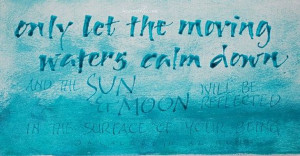 only let the moving
waters calm down
AND THE SUN WILL BE
& MOON REFLECTED
IN THE SURFACE OF YOUR BEING